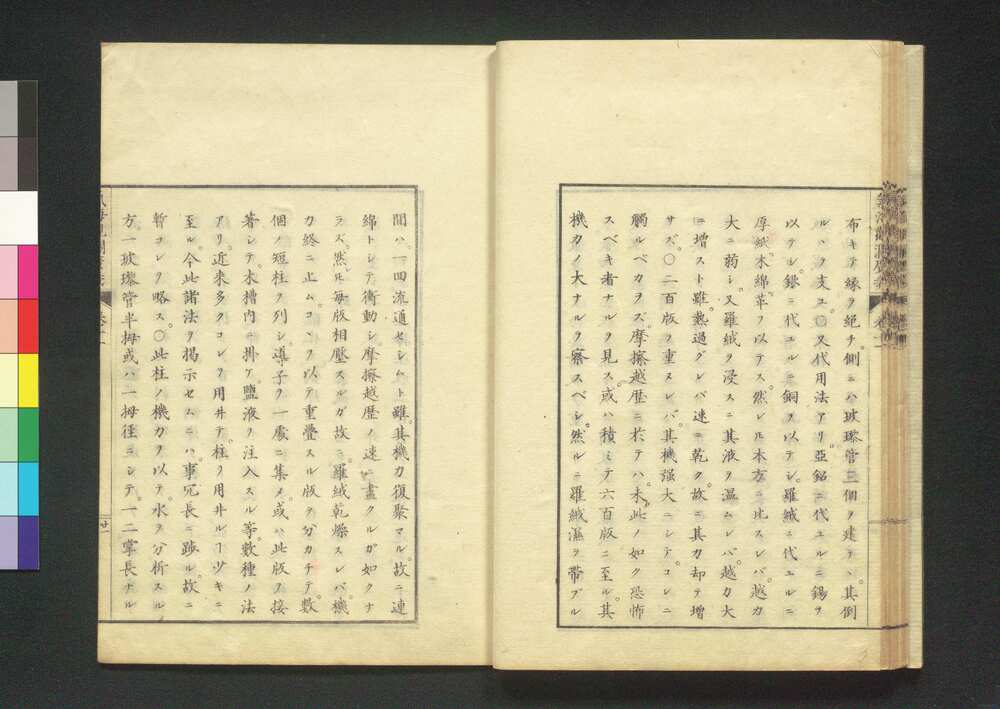 布キテ縁ヲ絶チ。側ニハ玻瓈管三個ヲ建テヽ。其倒
ルヽヲ支ユ。〇又代用法アリ。亞鉛ニ代ユルニ錫ヲ
以テシ。銀ニ代ユルニ銅ヲ以テシ。羅絨ニ代ユルニ
厚紙木綿革ヲ以テス。然レ𪜈本方ニ比スレバ越力
大ニ弱シ。又羅絨ヲ浸スニ其液ヲ温ムレバ。越力大
ニ増スト雖。熱過グレバ速ニ乾ク。故ニ其力却テ増
サズ。〇二百版ヲ重ヌレバ。其機強大ニシテ。コレニ
觸ルベカラズ。摩擦越歴ニ於テハ。未此ノ如ク恐怖
スベキ者ナルヲ見ス。或ハ積ミテ六百版ニ至ル。其
機力ノ大ナルヲ察スベシ。然ルニ羅絨濕ヲ帶ブル
間ハ。一四流通セシムト雖。其機力復聚マル。故ニ連
綿トシテ衝動シ。摩擦越歴ノ速ニ盡クルガ如クナ
ラズ。然𪜈毎版相壓スルガ故ニ。羅絨乾燥スレバ。機
力終ニ止ム。コヽヲ以テ重疊スル版ヲ分カチテ。數
個ノ短柱ヲ列シ。導子ヲ一處ニ集メ。或ハ此版ヲ接
著シテ。木槽内ニ掛ケ。鹽液ヲ注入スル等。數種ノ法
アリ。近来多クコレヲ用井テ。柱ヲ用井ルヿ少キニ
至ル。今此諸法ヲ掲示セムニハ。事冗長ニ跡ル。故ニ
暫コレヲ略ス。〇此柱ノ機力ヲ以テ。水ヲ分析スル
方。一玻瓈管半拇或ハ一拇徑ニシテ。一二掌長ナル
卷十二
廿一